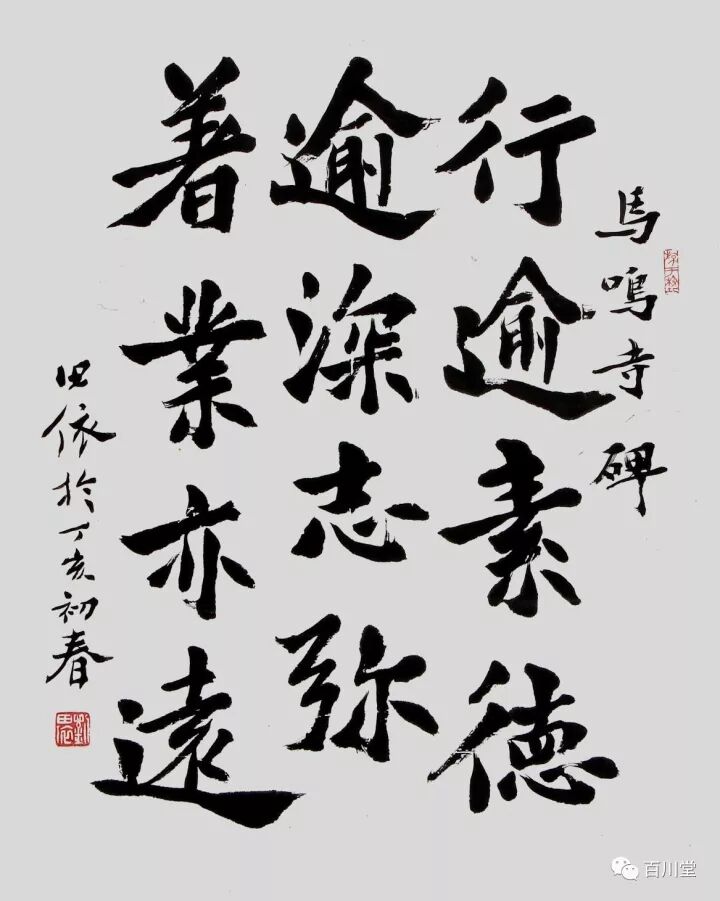 馬鳴寺碑
行逾素德
逾深志弥
著業亦遠
田依於丁亥初春
百川堂